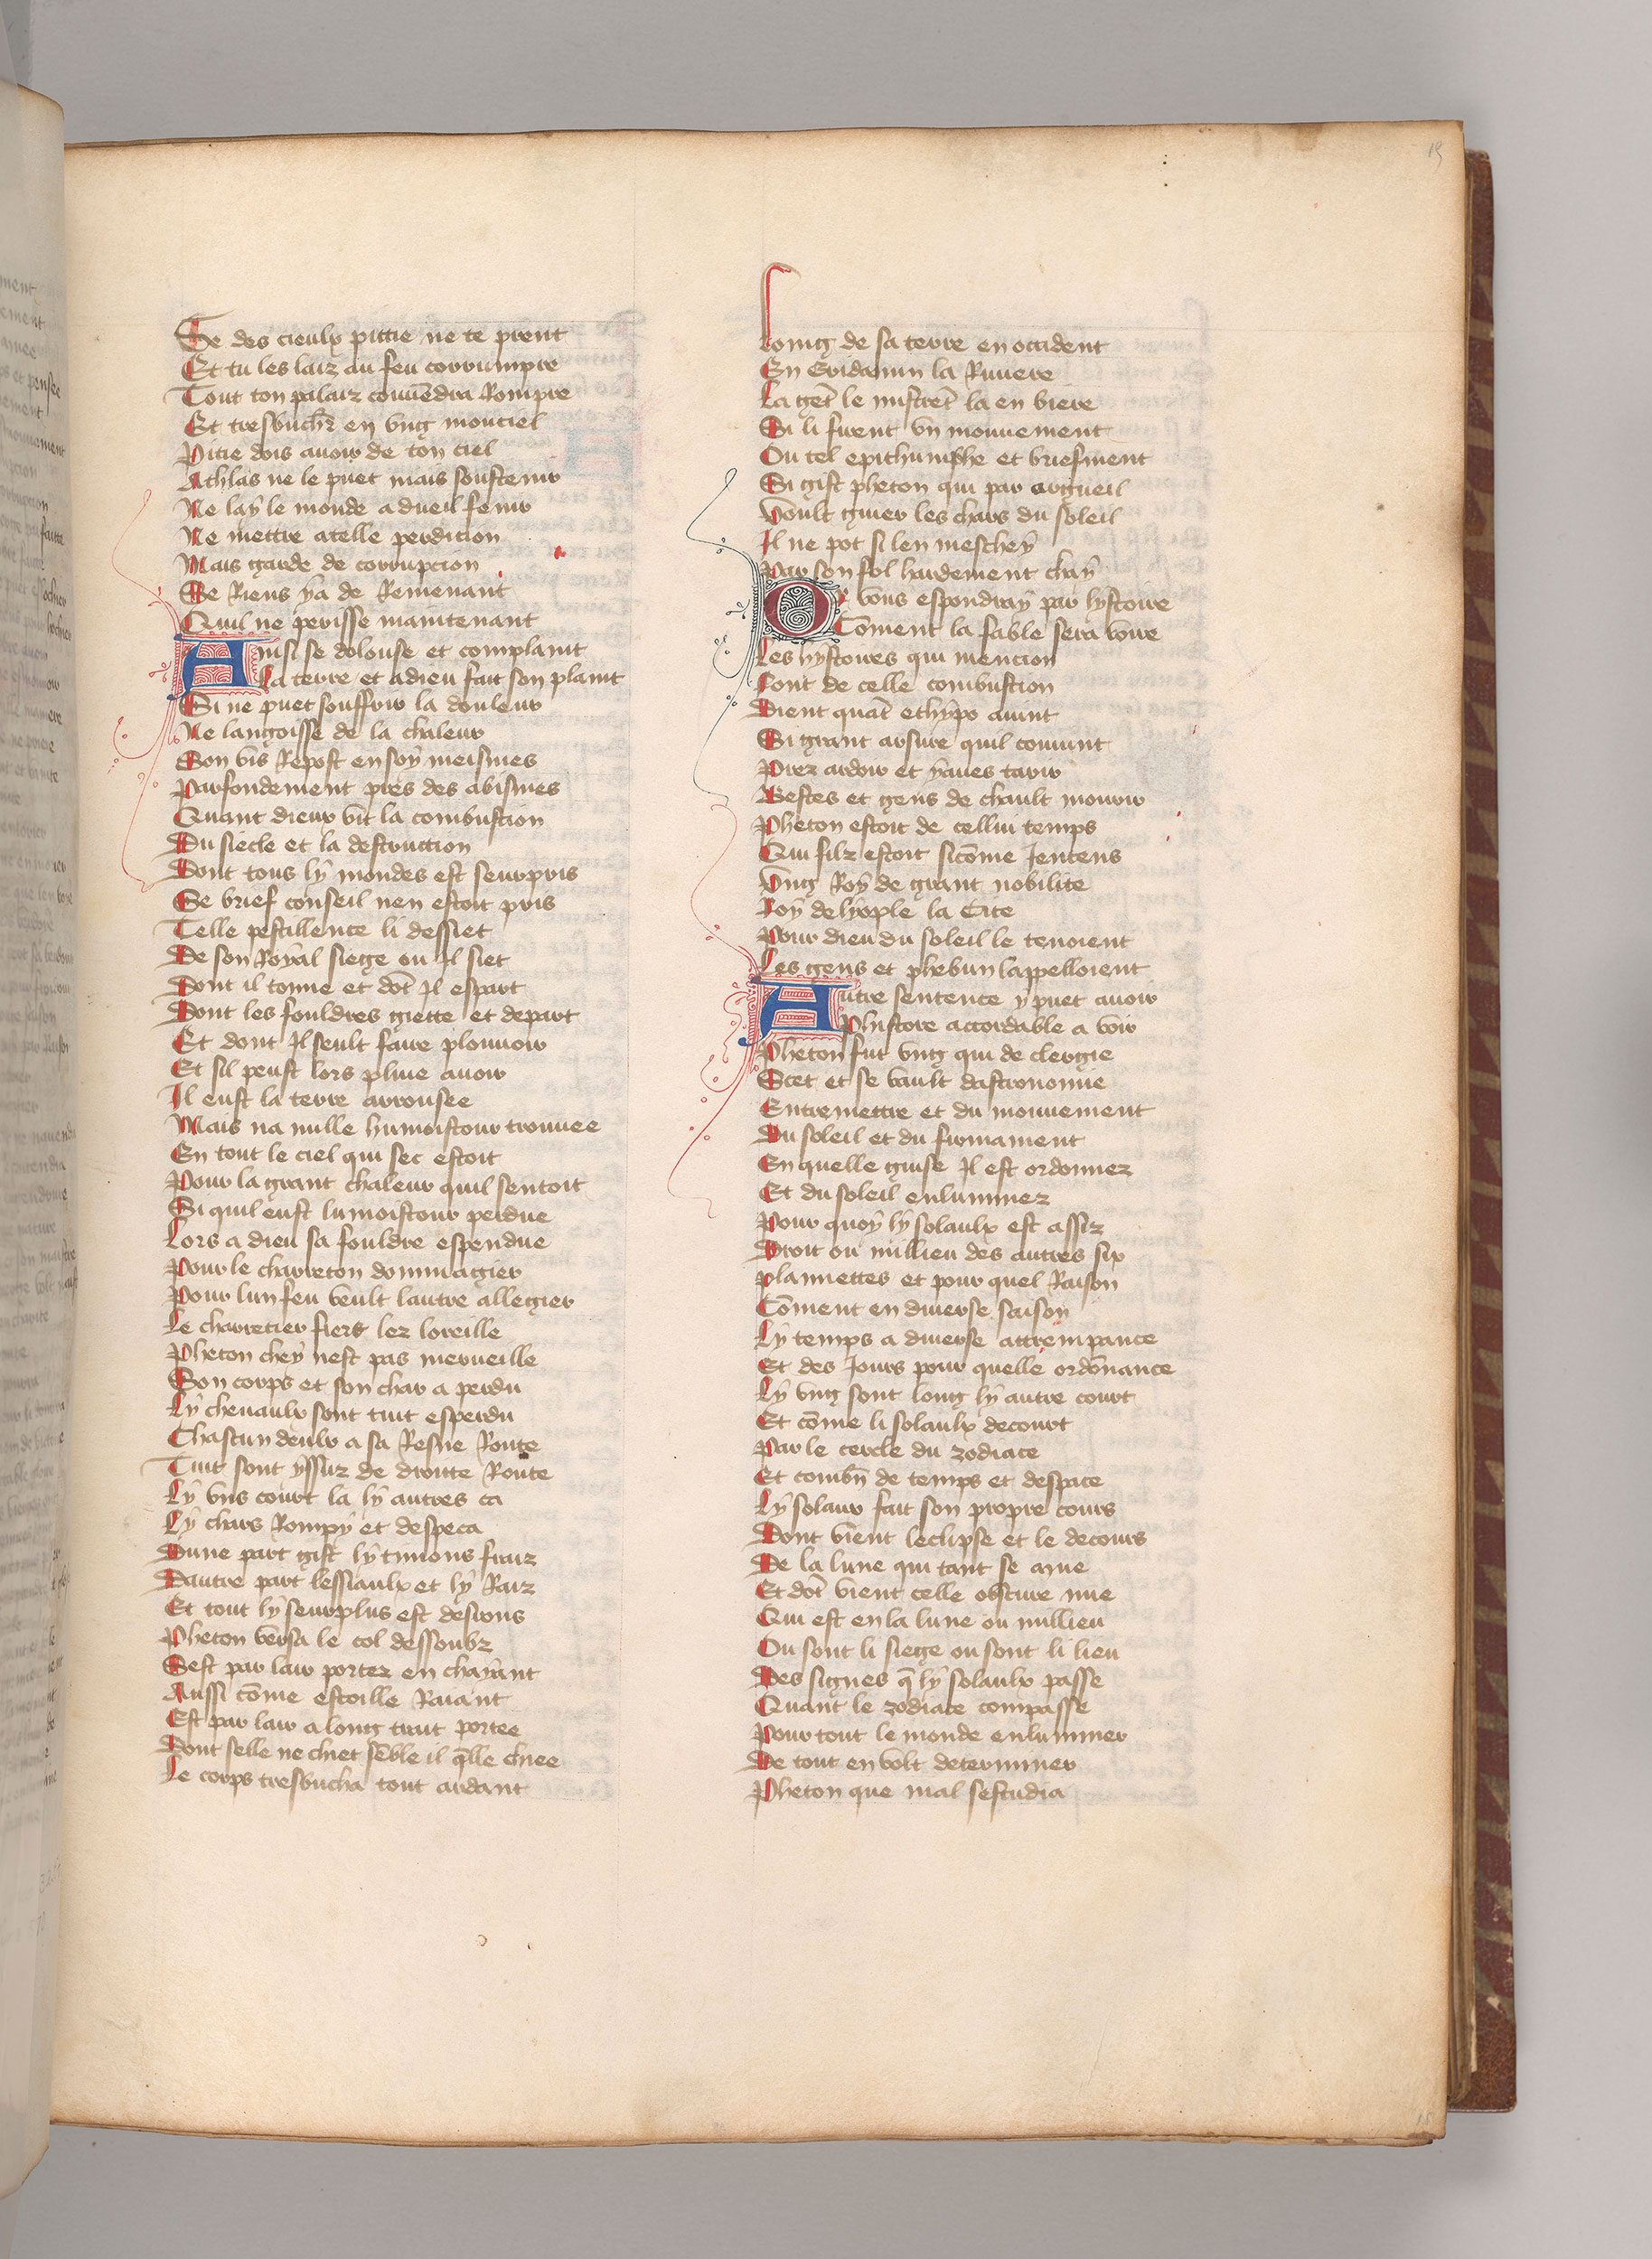 Se des cieulx pittie ne te prent
Et tu les laiz au feu corrumpre
Tout ton palaiz couuēdra Rompre
Et tresbuchr̄ en vng monciel
Pitie dois auoir de ton ciel
Athlas ne le puet mais soustenir
Ne laÿ le monde a dueil fenir
Ne mettre atelle perdicion
Mais garde de corrupcion
Se Riens ÿa de Remenant
Quil ne perisse maintenant
Ainsi se dolouse et complaint
La terre et adieu fait son plaint
Si ne puet souffrir la douleur
Ne langoisse de la chaleur
Son vis Repost en soÿ meismes
Parfondement pres des abismes
Quant dieux vit la combustion
Du siecle et la destruction
Dont tous lÿ mondes est seurpris
Se brief conseil nen estoit pris
Telle pestillence li dessiet
De son Royal siege ou Il siet
Dont il tonne et dōt Il espart
Dont les fouldres giette et depart
Et dont Il seult faire plouuoir
Et sil peust lors pluie auoir
Il eust la terre arrousee
Mais na nulle humoistour trouuee
En tout le ciel qui sec estoit
Pour la grant chaleur quil sentoit
Si quil eust lumoistour perdue
Lors a dieu sa fouldre espendue
Pour le charreton dommagier
Pour lun feu veult lautre allegier
Le charretier fiert lez loreille
Pheton cheÿ nest pas merueille
Son corps et son char a perdu
Lÿ cheuaulx sont tuit esperdu
Chascun deulx a sa Resne Route
Tuit sont yssuz de droitte Route
Lÿ vns court la lÿ autres ca
Lÿ chars Rompÿ et despeca
Dune part gist lÿ timons fraiz
Dautre part lessiaulx et lÿ Raiz
Et tout lÿ seurplus est desrous
Pheton versa le col dessoubz
Sest par lair portez en chaÿant
Aussi cōme estoille Raiant
Est par lair a long trait portee
Dont selle ne chiet sēble il q̄lle chiee
Le corps tresbucha tout ardant
Loing de sa terre en occident
En Eridanun la Riuiere
La gēt le mistrēt la en biere
Si li firent vn monuement
Ou tel epithumphe et briefment
Si gist pheton qui par orgueil
Voult guier les chars du soleil
Il ne pot si len mescheÿ
Par son fol hardement chaÿ
Or vous espondraÿ par hystoire
Cōment la fable sera voire
Les hystoires qui mencion
Font de celle combustion
Dient quāt ethÿpe auint
Si grant arsure quil conuint
Prez ardoir et ÿaues tarir
Bestes et gens de chault mourir
Pheton estoit de cellui temps
Qui filz estoit sicōme Ientens
Vng Roÿ de grant nobilite
Roÿ delyople la Cite
Pour dieu du soleil le tenoient
Les gens et phebun lappelloient
Autre sentence y puet auoir
Phistore accordable a voir
Pheton fut vng qui de clergie
Scet et se vault dastronomie
Entremettre et du mouuement
Du soleil et du firmament
En quelle guise Il est ordonnez
Et du soleil enluminez
Pour quoÿ lÿ solaulx est assiz
Droit ou millieu des autres six
Plannettes et pour quel Raison
Cōment en diuerse saison
Lÿ temps a diuerse attrempance
Et des Jours pour quelle ordōnance
Lÿ vng sont long lÿ autre court
Et cōme li solaulx decourt
Par le cercle du zodiace
Et combn̄ de temps et despace
Lÿ solaux fait son propre cours
Dont vient leclipse et le decours
De la lune qui tant se mue
Et dōt vient celle obscure nue
Qui est en la lune ou millieu
Ou sont li siege ou sont li lieu
Des signes q̄ lÿ solaulx passe
Quant le zodiace compasse
Pour tout le monde enluminer
De tout en volt determiner
Pheton que mal sestudia